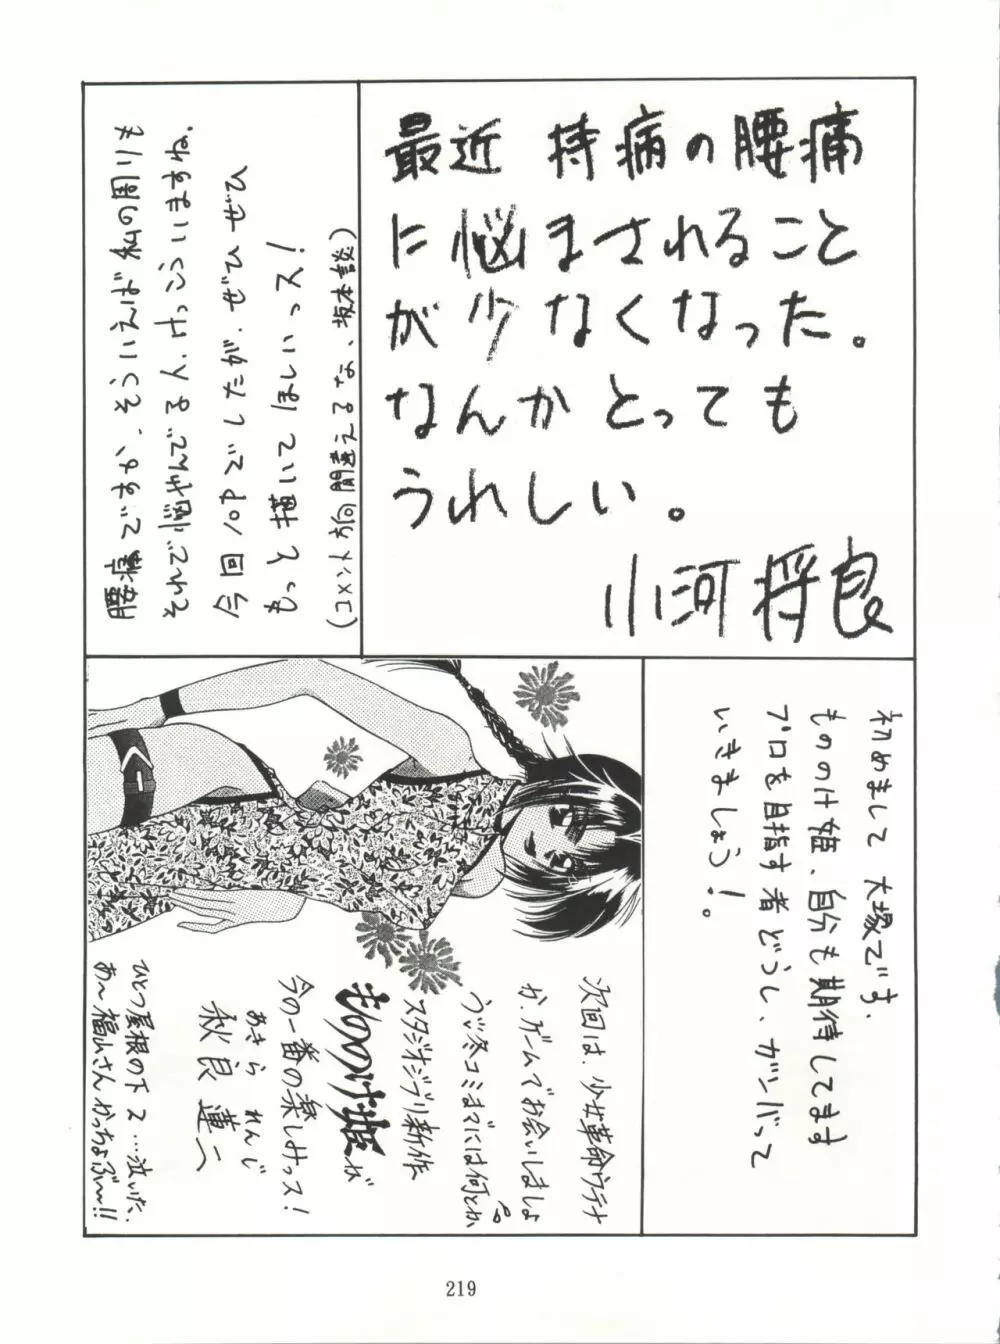 最近 持病の腰痛
に悩まされること
が少なくなった。
なんかとっても
うれしい。
小河将良
腰痛ですか、そういえば私の周りも
それで悩やんでる人、けっこういますね。
今回10Pでしたが、ぜひぜひ
もっと描いてほしいっス!
(コメント方向間違えるな、坂本談)
初めまして 大塚です。
もののけ姫、自分も期待してます
プロを目指す者どうし、ガンバって
いきましょう!。
次回は、少女革命ウテナ
か、ゲームでお会いしましょ
う♪冬コミまでには何とか
スタジオジブリ新作
もののけ姫が
今の一番の楽しみっス!
あきら れんじ
秋良 蓮二
ひとつ屋根の下2…泣いた。
あ〜福山さんかっちょぶ〜!!
219